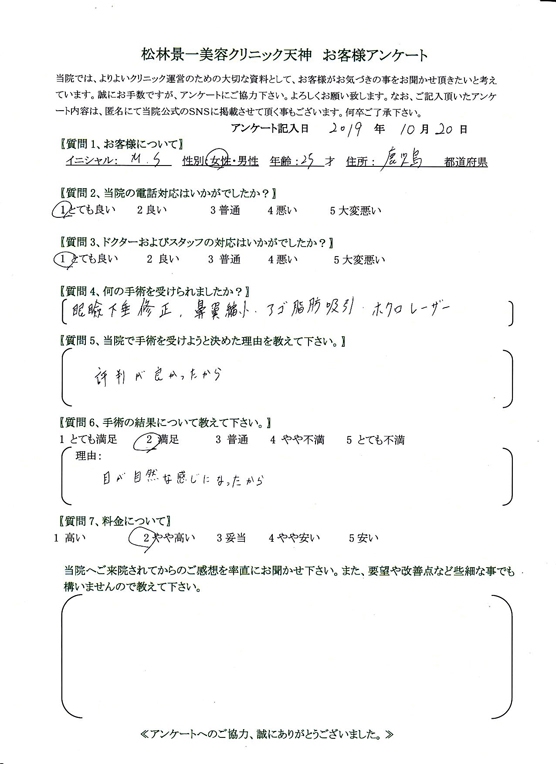 松林景一美容クリニック天神 お客様アンケート
当院では、よりよいクリニック運営のための大切な資料として、お客様がお気づきの事をお聞かせ頂きたいと考え
ています。誠にお手数ですが、アンケートにご協力下さい。よろしくお願い致します。なお、ご記入頂いたアンケ
ート内容は、匿名にて当院公式のSNSに掲載させて頂く事もございます。何卒ご了承下さい。
アンケート記入日 2019 年 10月 20日
〖質問1、お客様について〗
イニシャル: M.S 性別:女性・男性 年齢:25 才 住所: 鹿児島 都道府県
〖質問2、当院の電話対応はいかがでしたか?〗
1とても良い 2良い 3普通 4悪い 5大変悪い
〖質問3、ドクターおよびスタッフの対応はいかがでしたか?〗
1とても良い 2 良い 3 普通 4悪い 5大変悪い
〖質問4、何の手術を受けられましたか?〗
眼瞼下垂修正、鼻翼縮小・アゴ脂肪吸引・ホクロレーザー
〖質問5、当院で手術を受けようと決めた理由を教えて下さい。〗
評判が良かったから
〖質問6、手術の結果について教えて下さい。〗
1 とても満足 2 満足 3 普通 4 やや不満 5 とても不満
理由:
目が自然な感じになったから
〖質問7、料金について〗
1 高い 2やや高い 3妥当 4やや安い 5安い
当院へご来院されてからのご感想を率直にお聞かせ下さい。また、要望や改善点など些細な事でも
構いませんので教えて下さい。
≪アンケートへのご協力、誠にありがとうございました。≫